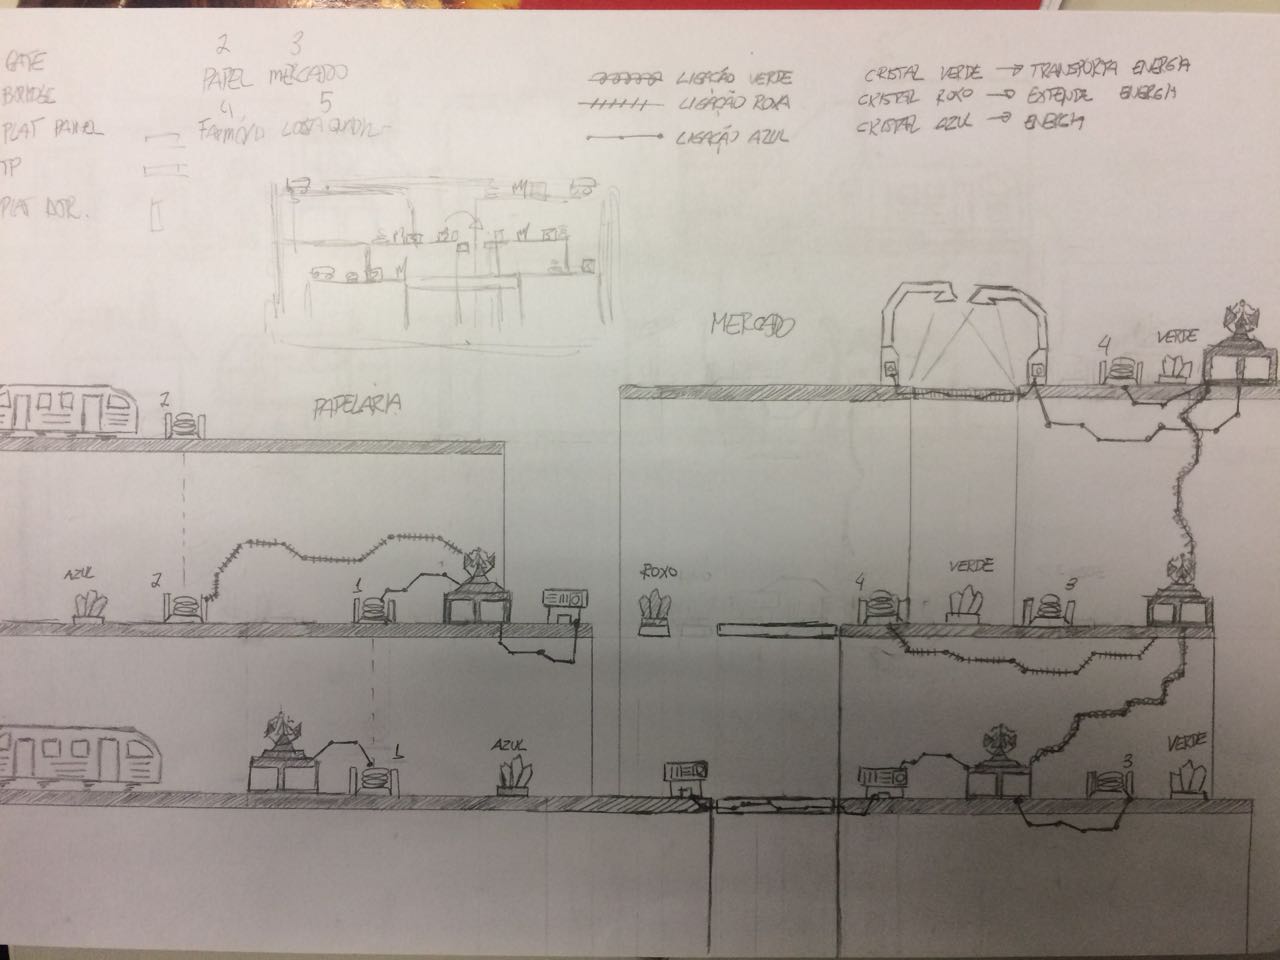 GATE
BRIDGE
PLAT PAINEL
TP
PLAT
2 3
PAPEL MERCADO
4 5
LIGAÇÃO VERDE
LIGAÇÃO ROXA
LIGAÇÃO AZUL
CRISTAL VERDE → TRANSPORTA ENERGIA
CRISTAL ROXO → EXTENDE ENERGIA
CRISTAL AZUL → ENERGIA
MERCADO
4
VERDE
2
PAPELARIA
AZUL
2
1
ROXO
4
VERDE
3
1
AZUL
3
VERDE